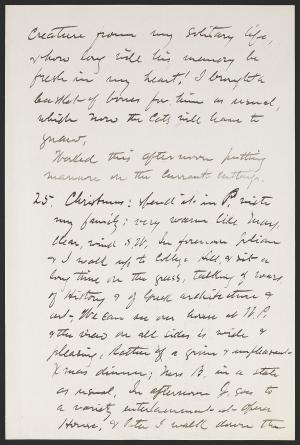 creature from my solitary life,
& how long will his memory be
fresh in my heart! I brought a
basket of bones for him as usual,
which now the cats will have to
gnaw.
Worked this afternoon putting
manure on the currant cuttings.
25. Christmas: Spend it in P. with
my family; very warm like May,
clear, wind S.W. In forenoon Julian
& I walk up to College Hill, & sit a
long time on the grass, talking of wars
of History & of Greek architecture &
art. We can see our house at W.P.
& the view on all sides is wide &
pleasing. Rather of a grim & unpleasant
Xmas dinner; Mrs B. in a state
as usual. In afternoon J. goes to
a variety entertainment at Opera
House, & I walk down the